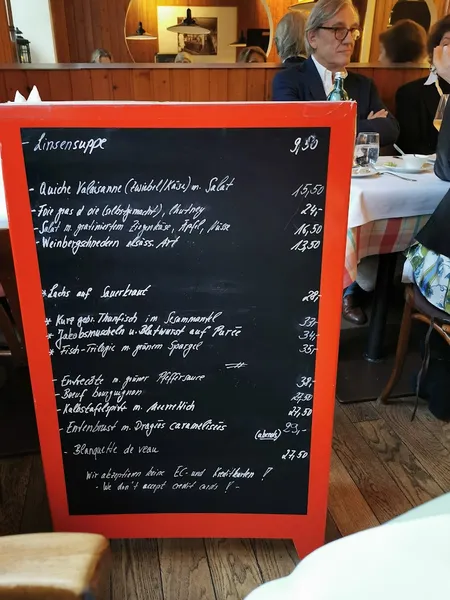 - Linsensuppe 9,50
- Quiche Valaisanne (Zwiebel/Käse) m. Salat 15,50
- Foie gras d'oie (selbstgemacht), Chutney 24,-
- Salat m. gratiniertem Ziegenkäse, Äpfel, Nüsse 16,50
- Weinbergschnecken elsäss. Art 13,50
* Lachs auf Sauerkraut 28,-
* Kurz gebr. Thunfisch im Sesammantel 33,-
* Jakobsmuscheln u. Blutwurst auf Purée 34,-
* Fisch-Trilogie m. grünem Spargel 35,-
- Entrecôte m. grüner Pfeffersauce 38,-
- Boeuf bourguignon 27,50
- Kalbstafelspitz m. Meerrettich 27,50
- Entenbrust m. Dragées caramélisées (abends) 23,-
- Blanquette de veau 27,50
Wir akzeptieren keine EC- und Kreditkarten !
- We don't accept credit cards ! -